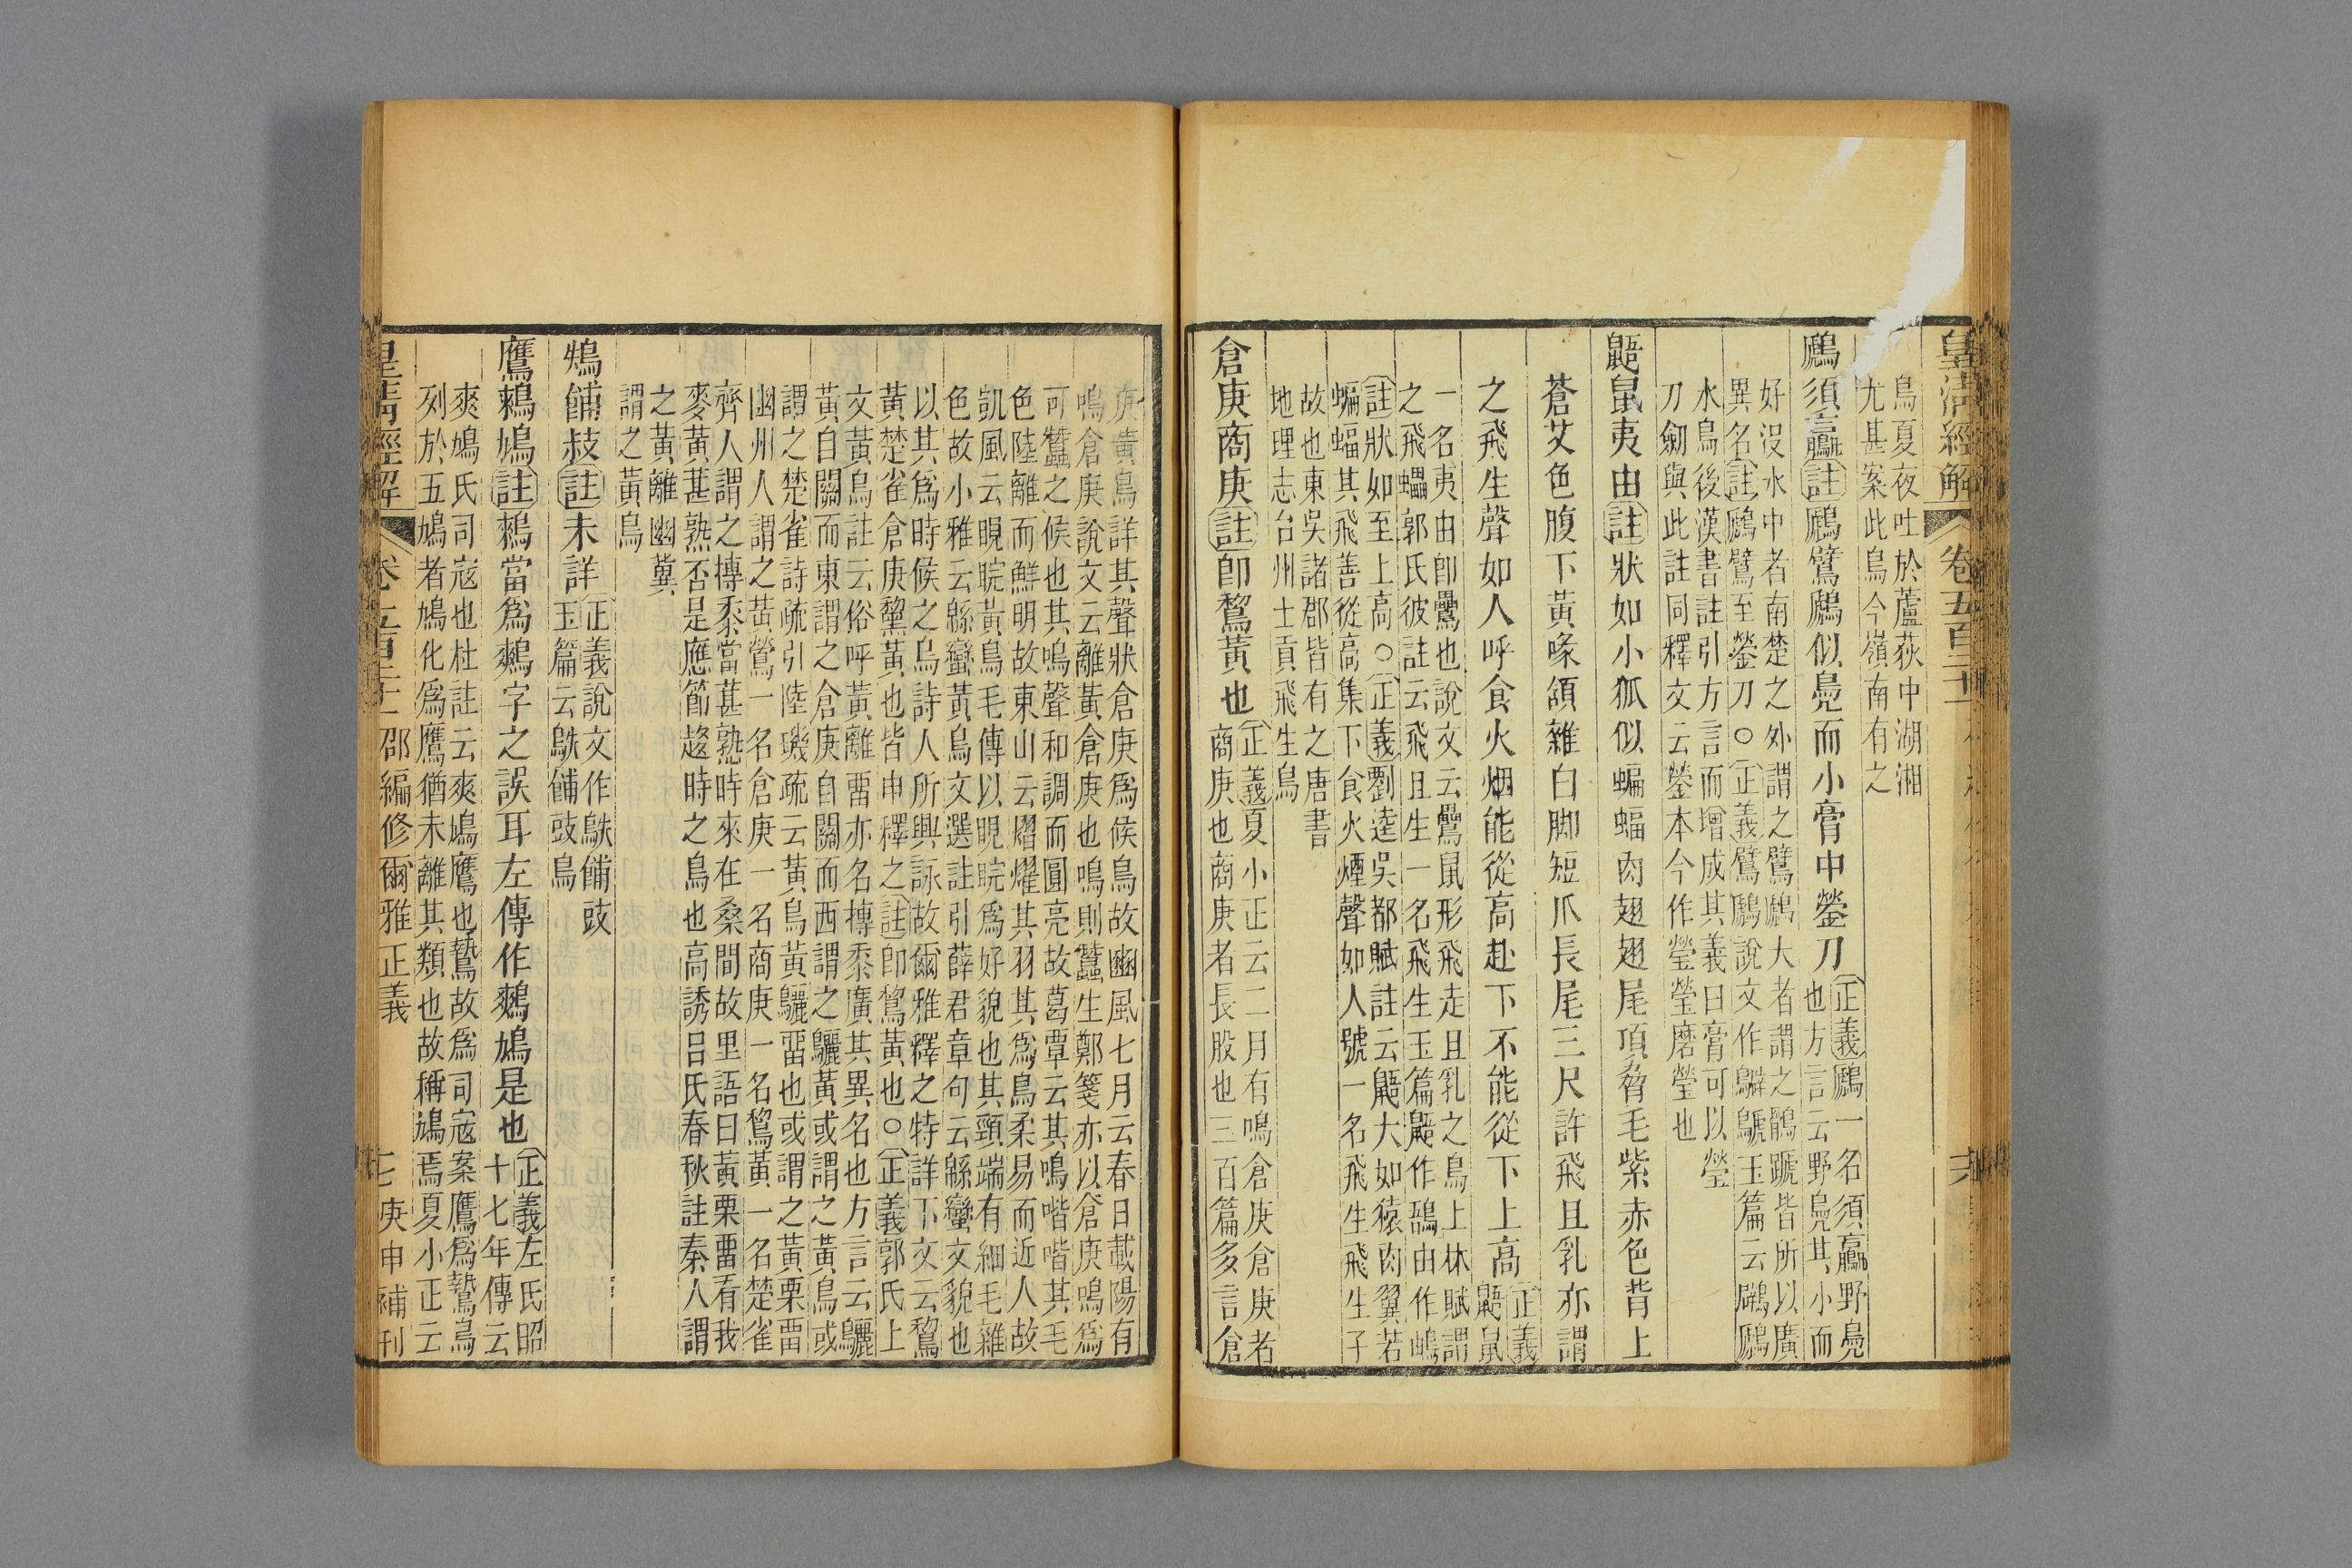 皇清經解
卷五百二十
鳥夏夜吐於蘆荻中湖湘
尤甚案此鳥今嶺南有之
鷉須鸁註鷉鸊鷉似鳧而小膏中鎣刀
正義鷉一名須鸁野鳧
也方言云野鳧其小而
好沒水中者南楚之外謂之鸊鷉大者謂之鶻蹏皆所以廣
異名註鷉鸊至鎣刀○正義鸊鷉說文作鷿鷈玉篇云鸊鷉
水鳥後漢書註引方言而增成其義曰膏可以瑩
刀劒與此註同釋文云鎣本今作瑩瑩磨瑩也
鼯鼠夷由註狀如小狐似蝙蝠肉翅翅尾項脅毛紫赤色背上
蒼艾色腹下黃喙頷雜白脚短爪長尾三尺許飛且乳亦謂
之飛生聲如人呼食火烟能從高赴下不能從下上高
正義
鼯鼠
一名夷由卽鸓也說文云鸓鼠形飛走且乳之鳥上林賦謂
之飛蠝郭氏彼註云飛且生一名飛生玉篇鼯作䳱由作䳑
註狀如至上高○正義劉逵吳都賦註云鼯大如猿肉翼若
蝙蝠其飛善從高集下食火煙聲如人號一名飛生飛生子
故也東吳諸郡皆有之唐書
地理志台州土貢飛生鳥
倉庚商庚註卽鵹黃也
正義夏小正云二月有鳴倉庚倉庚者
商庚也商庚者長股也三百篇多言倉
庚黃鳥詳其聲狀倉庚爲候鳥故豳風七月云春日載陽有
鳴倉庚說文云離黃倉庚也鳴則蠶生鄭箋亦以倉庚鳴爲
可蠶之候也其鳴聲和調而圓亮故葛覃云其鳴喈喈其毛
色陸離而鮮明故東山云熠燿其羽其爲鳥柔易而近人故
凱風云睍睆黃鳥毛傳以睍睆爲好貌也其頸端有細毛雜
色故小雅云緜蠻黃鳥文選註引薛君章句云緜蠻文貌也
以其爲時候之鳥詩人所興詠故爾雅釋之特詳下文云鵹
黃楚雀倉庚鵹黃也皆申釋之註卽鵹黃也○正義郭氏上
文黃鳥註云俗呼黃離畱亦名摶黍廣其異名也方言云鸝
黃自關而東謂之倉庚自關而西謂之鸝黃或謂之黃鳥或
謂之楚雀詩疏引陸璣疏云黃鳥黃鸝畱也或謂之黃栗畱
幽州人謂之黃鶯一名倉庚一名商庚一名鵹黃一名楚雀
齊人謂之摶黍當葚熟時來在桑間故里語曰黃栗畱看我
麥黃葚熟否是應節趍時之鳥也高誘呂氏春秋註秦人謂
之黃離幽冀
謂之黃鳥
鴩餔敊註未詳
正義說文作鴃餔䜴
玉篇云鴃餔䜴鳥
鷹鶆鳩註鶆當爲鷞字之誤耳左傳作鷞鳩是也
正義左氏昭
十七年傳云
爽鳩氏司寇也杜註云爽鳩鷹也鷙故爲司寇案鷹爲鷙鳥
列於五鳩者鳩化爲鷹猶未離其類也故稱鳩焉夏小正云
皇淸經解
卷五百二十一
邵編修爾雅正義
庚申補刊